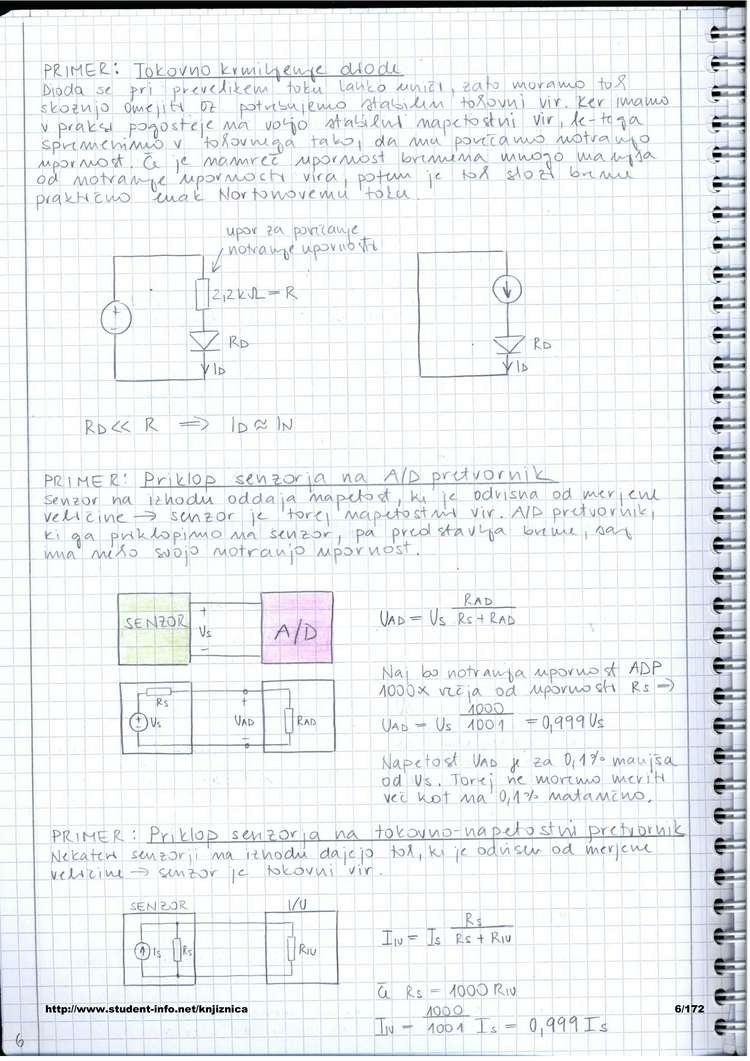 PRIMER: Tokovno krmiljenje diode
Dioda se pri prevelikem toku lahko uniči, zato moramo tok
skoznjo omejiti oz potrebujemo stabilen tokovni vir. Ker imamo
v praksi pogosteje na voljo stabilni napetostni vir, le-tega
spremenimo v tokovnega tako, da mu povečamo notranjo
upornost. Če je namreč upornost bremena mnogo manjša
od notranje upornosti vira, potem je tok skozi breme
praktično enak Nortonovemu toku.
upor za povečanje
notranje upornosti
2,2kΩ = R
+
-
RD
ID
RD
ID
RD << R => ID ≈ IN
PRIMER: Priklop senzorja na A/D pretvornik
Senzor na izhodu oddaja napetost, ki je odvisna od merjene
veličine → senzor je torej napetostni vir. A/D pretvornik,
ki ga priklopimo na senzor, pa predstavlja breme, saj
ima neko svojo notranjo upornost.
SENZOR
+
Vs
-
A/D
UAD = Us RAD / Rs + RAD
Rs
+
-
Vs
+
UAD
-
RAD
Naj bo notranja upornost ADP
1000x večja od upornosti Rs →
UAD = Us 1000 / 1001 = 0,999 Us
Napetost UAD je za 0,1% manjša
od Us. Torej ne moremo meriti
več kot na 0,1% natančno.
PRIMER: Priklop senzorja na tokovno-napetostni pretvornik
Nekateri senzorji na izhodu dajejo tok, ki je odvisen od merjene
veličine → senzor je tokovni vir.
SENZOR
I/U
Is
Rs
RIU
IIU = Is Rs / Rs + RIU
Če Rs = 1000 RIU
IIU = 1000 / 1001 Is = 0,999 Is
http://www.student-info.net/knjiznica
6/172
6